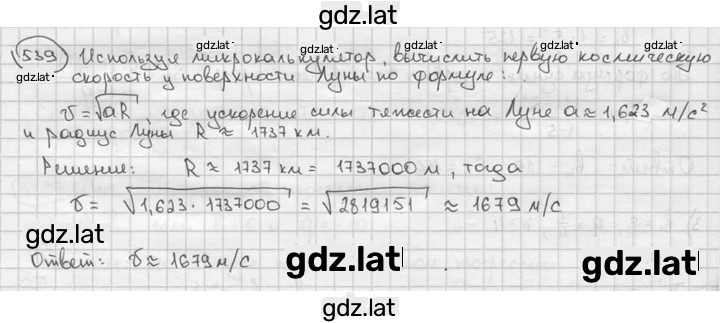 gdz.lat
539 Используя микрокалькулятор, вычислить первую космическую
gdz.lat gdz.lat gdz.lat
скорость у поверхности Луны по формуле:
v = √aR, где ускорение силы тяжести на Луне a ≈ 1,623 м/с²
и радиус Луны R ≈ 1737 км.
gdz.lat gdz.lat gdz.lat
Решение: R ≈ 1737 км = 1737000 м, тогда
v = √1,623 · 1737000 = √2819151 ≈ 1679 м/с
gdz.lat
Ответ: v ≈ 1679 м/с
gdz.lat gdz.lat
gdz.lat